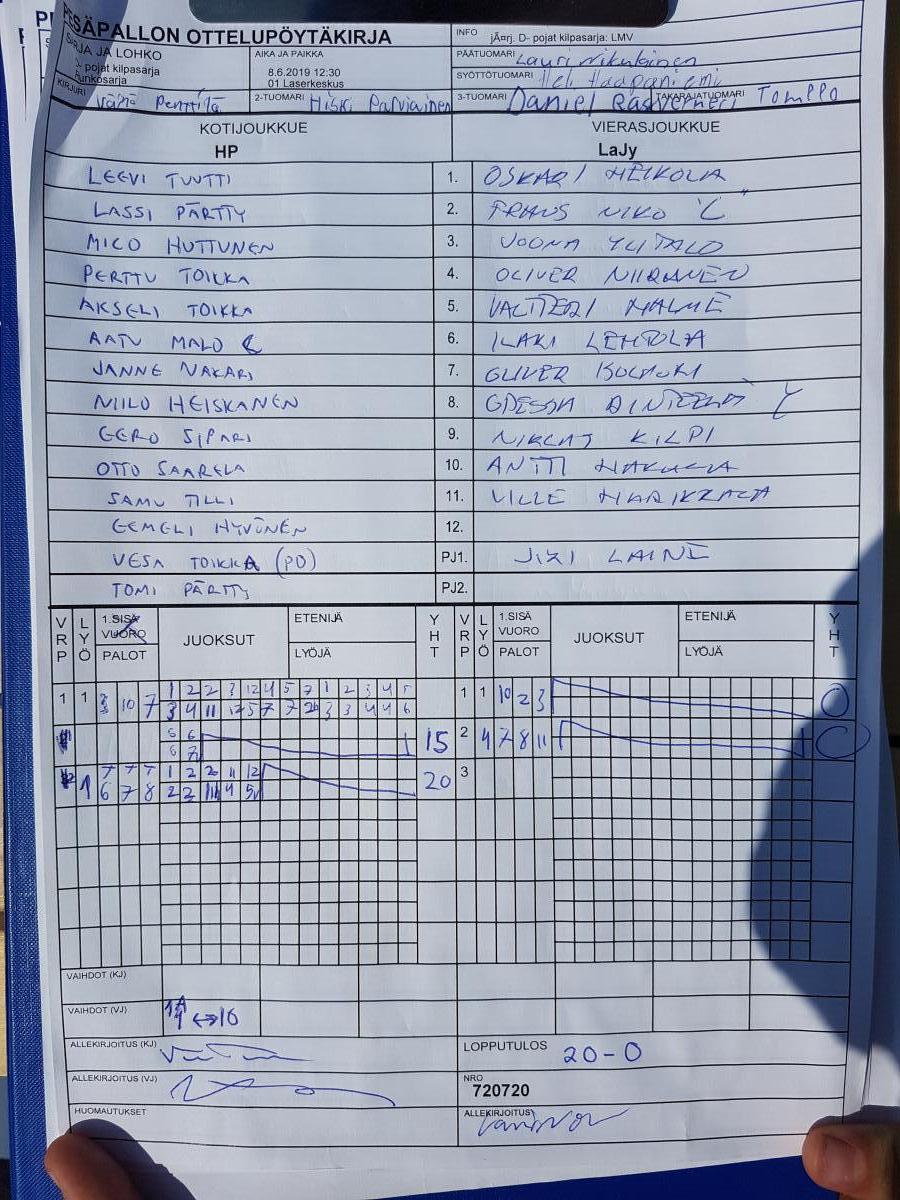 PESÄPALLON OTTELUPÖYTÄKIRJA
SARJA JA LOHKO
pojat kilpasarja
Runkosarja
AIKA JA PAIKKA
8.6.2019 12:30
01 Laserkeskus
INFO jÃ¤rj. D- pojat kilpasarja: LMV
PÄÄTUOMARI Lauri Mikulainen
SYÖTTÖTUOMARI Heli Haapaniemi
KIRJURI Väinö Penttilä
2-TUOMARI Hiski Parviainen
3-TUOMARI Daniel
TAKARAJATUOMARI Tomppo
KOTIJOUKKUE
HP
VIERASJOUKKUE
LaJy
LEEVI TUUTTI 1. OSKARI HEIKOLA
LASSI PÄRTTY 2. FRANS NIKO "C"
MICO HUTTUNEN 3. JOONA YLITALO
PERTTU TOIKKA 4. OLIVER NIIRANEN
AKSELI TOIKKA 5. VALTTERI MALMI
AATU MALO C 6. ILARI LEHTOLA
JANNE NAKARI 7. OLIVER
NIILO HEISKANEN 8.
EERO SIPARI 9. NIKLAS KILPI
OTTO SAARELA 10. ANTTI HAKULA
SAMU TILLI 11. VILLE
EEMELI HYVÖNEN 12.
VESA TOIKKA (PD) PJ1. JIRI LAINE
TOMI PÄRTTY PJ2.
VRP LYÖ 1.SISÄ VUORO PALOT JUOKSUT ETENIJÄ LYÖJÄ YHT VRP LYÖ 1.SISÄ VUORO PALOT JUOKSUT ETENIJÄ LYÖJÄ YHT
1 1 3 10 7 1 2 2 3 12 4 5 7 1 2 3 4 5 1 1 10 2 3 0
3 4 11 12 5 7 7 3 3 4 4 6
5 6 15 2 4 7 8 11 0
6 7
2 1 7 7 7 1 2 2 11 12 20 3
6 7 8 2 2 11 4 5
VAIHDOT (KJ)
VAIHDOT (VJ) ↔ 10
ALLEKIRJOITUS (KJ)
LOPPUTULOS 20-0
ALLEKIRJOITUS (VJ)
NRO
720720
HUOMAUTUKSET
ALLEKIRJOITUS